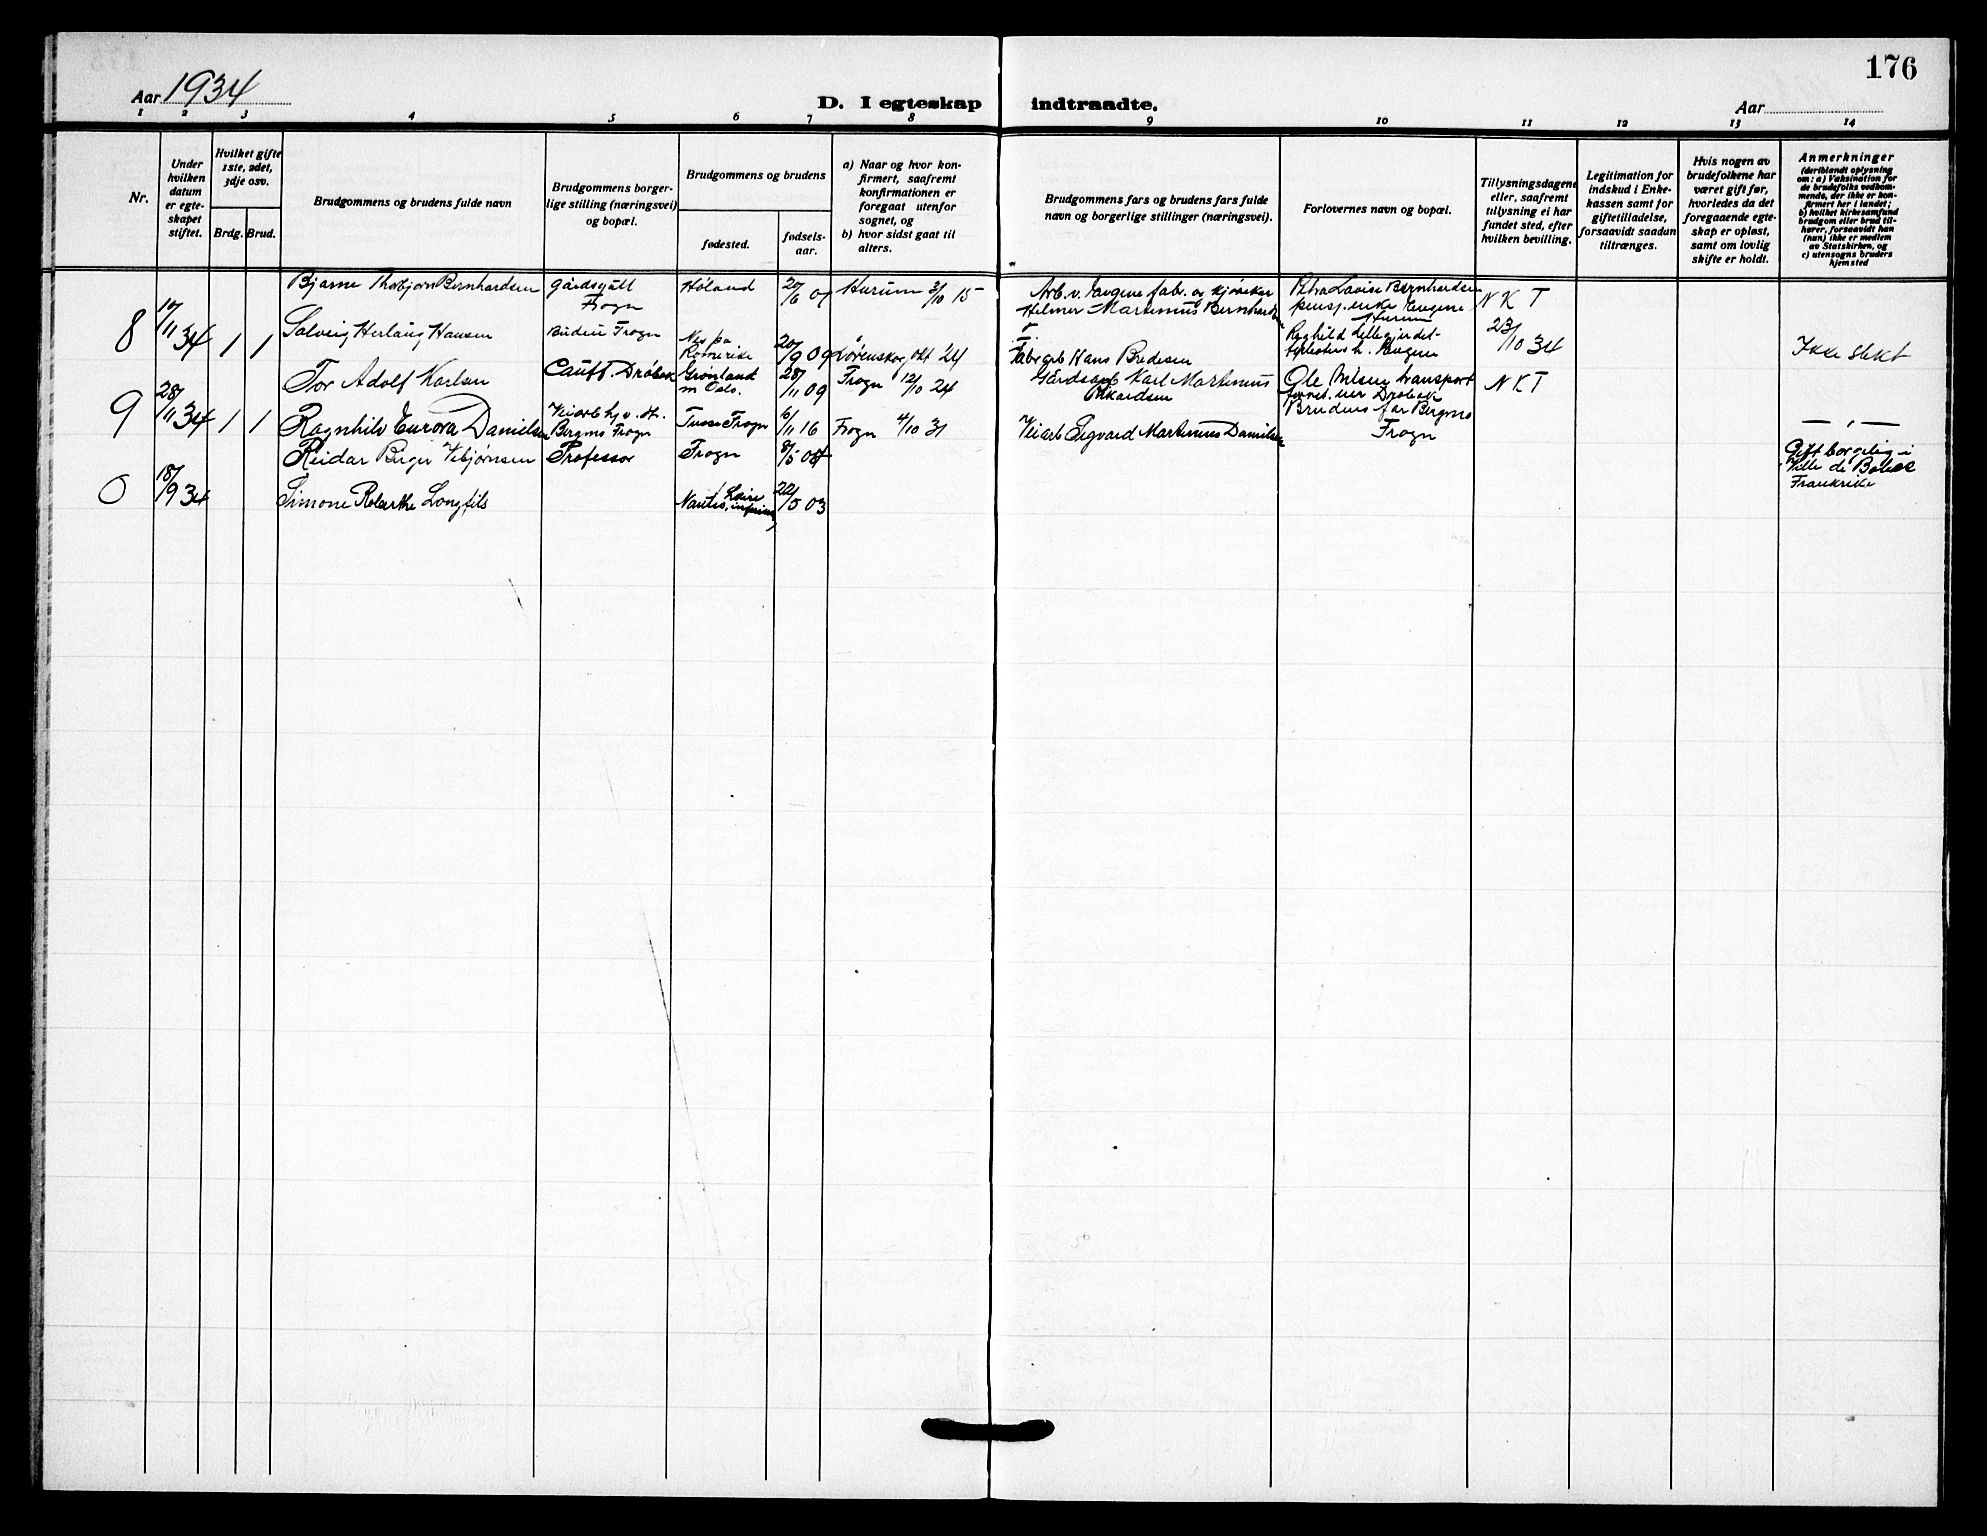 176
Aar 1934
D. I egteskap
indtraadte.
Aar
1 2 3 4 5 6 7 8 9 10 11 12 13 14
Nr.
Under
hvilken
datum
er egte-
skapet
stiftet.
Hvilket gifte
1ste, 2det,
3dje osv.
Brdg. Brud.
Brudgommens og brudens fulde navn
Brudgommens borger-
lige stilling (næringsvei)
og bopæl.
Brudgommens og brudens
fødested.
fødsels-
aar.
a) Naar og hvor kon-
firmert, saafremt
konfirmationen er
foregaat utenfor
sognet, og
b) hvor sidst gaat til
alters.
Brudgommens fars og brudens fars fulde
navn og borgerlige stillinger (næringsvei).
Forlovernes navn og bopæl.
Tillysningsdagene
eller, saafremt
tillysning ei har
fundet sted, efter
hvilken bevilling.
Legitimation for
indskud i Enke-
kassen samt for
giftetilladelse,
forsaavidt saadan
tiltrænges.
Hvis nogen av
brudefolkene har
været gift før,
hvorledes da det
foregaaende egte-
skap er opløst,
samt om lovlig
skifte er holdt.
Anmerkninger
(deriblandt oplysning
om: a) Vaksination for
de brudefolks vedkom-
mende, der ikke er kon-
firmert her i landet;
b) hvilket kirkesamfund
brudgom eller brud til-
hører, forsaavidt han
(hun) ikke er medlem
av Statskirken, og
c) utensogns bruders
hjemsted
8 17/11 34 1 1
Bjarne Thorbjørn Bernhardsen
gårdsgutt
Frogn
Høland
20/6 07
Hurum 3/10 15
Arb. v. Engene fab. og kjøreker
Hilmer Martinius Bernhardsen
Petra Lovise Bernhardsen
pensj. enke Engene
Hurum
N K T
Solveig Herlaug Hansen
Budeie Frogn
Nes på
Romerike
20/9 09
Lørenskog okt 24
Fabr.arb Hans Bredesen
Engene
23/10 34
Ikke slekt
9 28/11 34 1 1
Tor Adolf Karlsen
Cauff. Drøbak
Grønland
m Oslo.
28/11 09
Frogn 12/10 24
Gårdsarb Karl Martinius
Rikardsen
Ole Nilsen transport
Drøbak
N K T
Ragnhild Eurora Danielsen
Bergmo Frogn
Tusse Frogn
6/11 16
Frogn 4/10 31
Veiarb Sigvard Martinius Danielsen
Brudens far Bergmo
Frogn
— „ —
0 18/9 34
Reidar Birger Vebjørnsen
Professor
Frogn
8/5 08
Gift borgerlig i
Ville de
Frankrike
Simone Roberthe Longfils
Nantes, Loire
inferieure
22/5 03